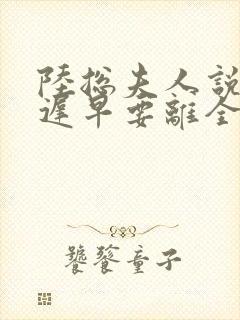 陸總夫人說
遲早要離全
饕餮童子